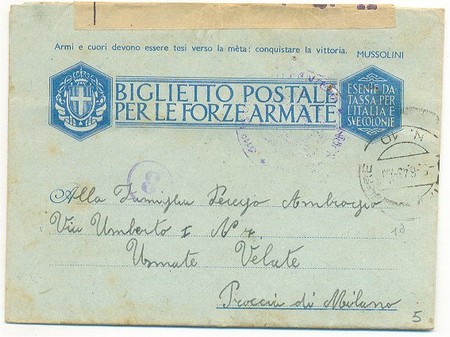 Armi e cuori devono essere tesi verso la mèta: conquistare la vittoria. MUSSOLINI
BIGLIETTO POSTALE
PER LE FORZE ARMATE
ESENTE DA
TASSA PER
L'ITALIA E
SVE COLONIE
N. 10
3
Alla Famiglia Perego Ambrogio
Via Umberto I N° 7
Usmate Velate
Proccia di Milano
5